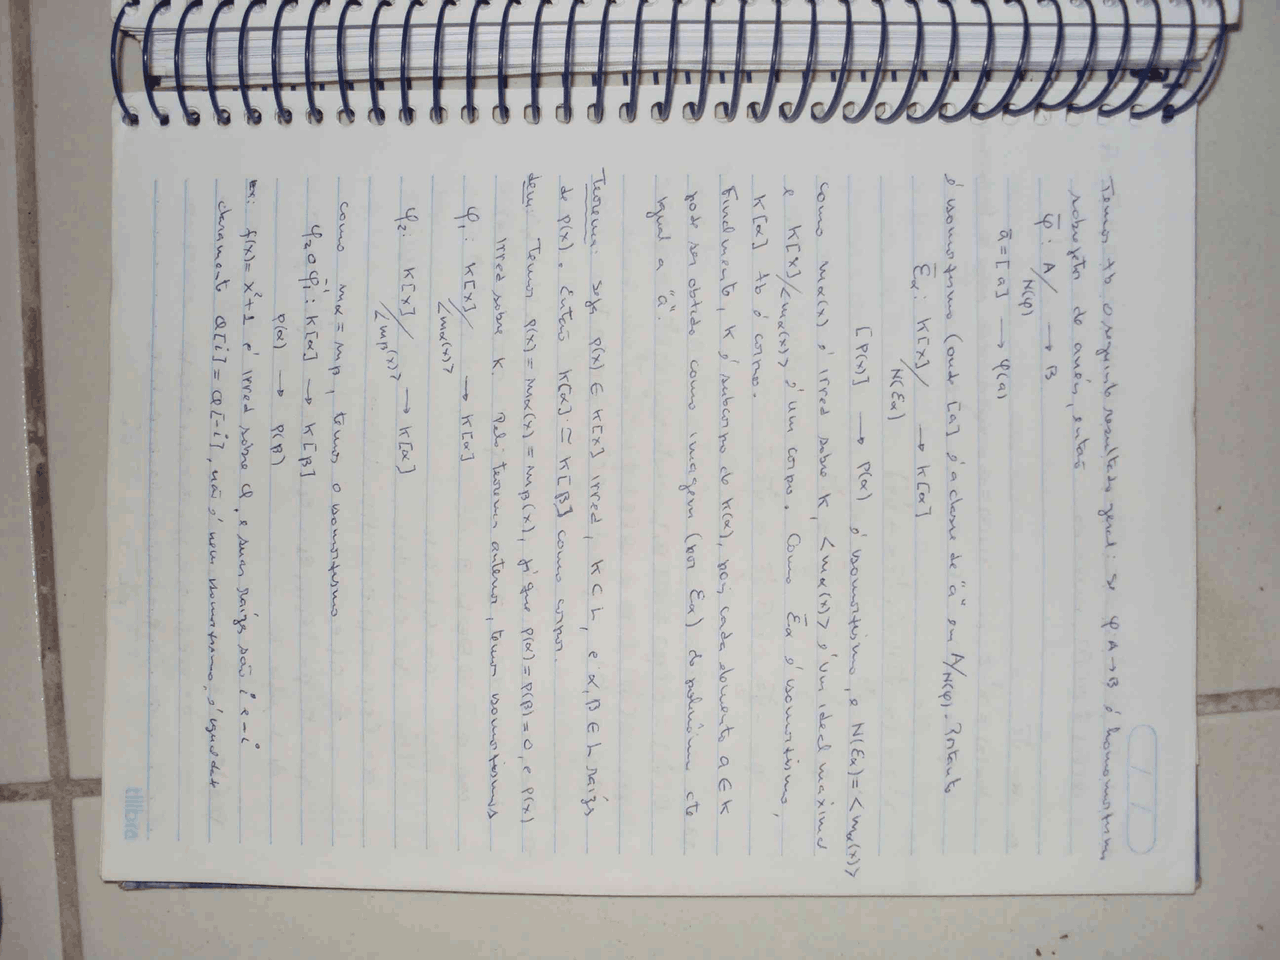 Temos tb o seguinte resultado geral: se φ: A → B é homomorfismo
sobrejetor de anéis, então
φ̄ : A/N(φ) → B
ā = [a] → φ(a)
é isomorfismo (onde [a] é a classe de "a" em A/N(φ). Portanto
Ēα : K[x]/N(Eα) → K[α]
[P(x)] → P(α) é isomorfismo, e N(Eα) = <mα(x)>
como mα(x) é irred sobre K, <mα(x)> é um ideal maximal
e K[x]/<mα(x)> é um corpo. Como Ēα é isomorfismo,
K[α] tb é corpo.
Finalmente, K é subcorpo de K(α), pois cada elemento a ∈ K
pode ser obtido como imagem (por Eα) do polinômio cte
igual a "a".
Teorema: seja P(x) ∈ K[x] irred, K ⊂ L, e α, β ∈ L raízes
de P(x). Então K[α] ≃ K[β] como corpos.
dem: Temos P(x) = mα(x) = mβ(x), já que P(α) = P(β) = 0, e P(x)
irred sobre K. Pelo teorema anterior, temos isomorfismos
φ₁ : K[x]/<mα(x)> → K[α]
φ₂ : K[x]/<mβ(x)> → K[α]
como mα = mβ, temos o isomorfismo
φ₂ ∘ φ₁⁻¹ : K[α] → K[β]
P(α) → P(β)
Ex: f(x) = x² + 1 é irred sobre Q, e suas raízes são i e -i
claramente Q[i] = Q[-i], não é nem isomorfismo, é igualdade
tilibra